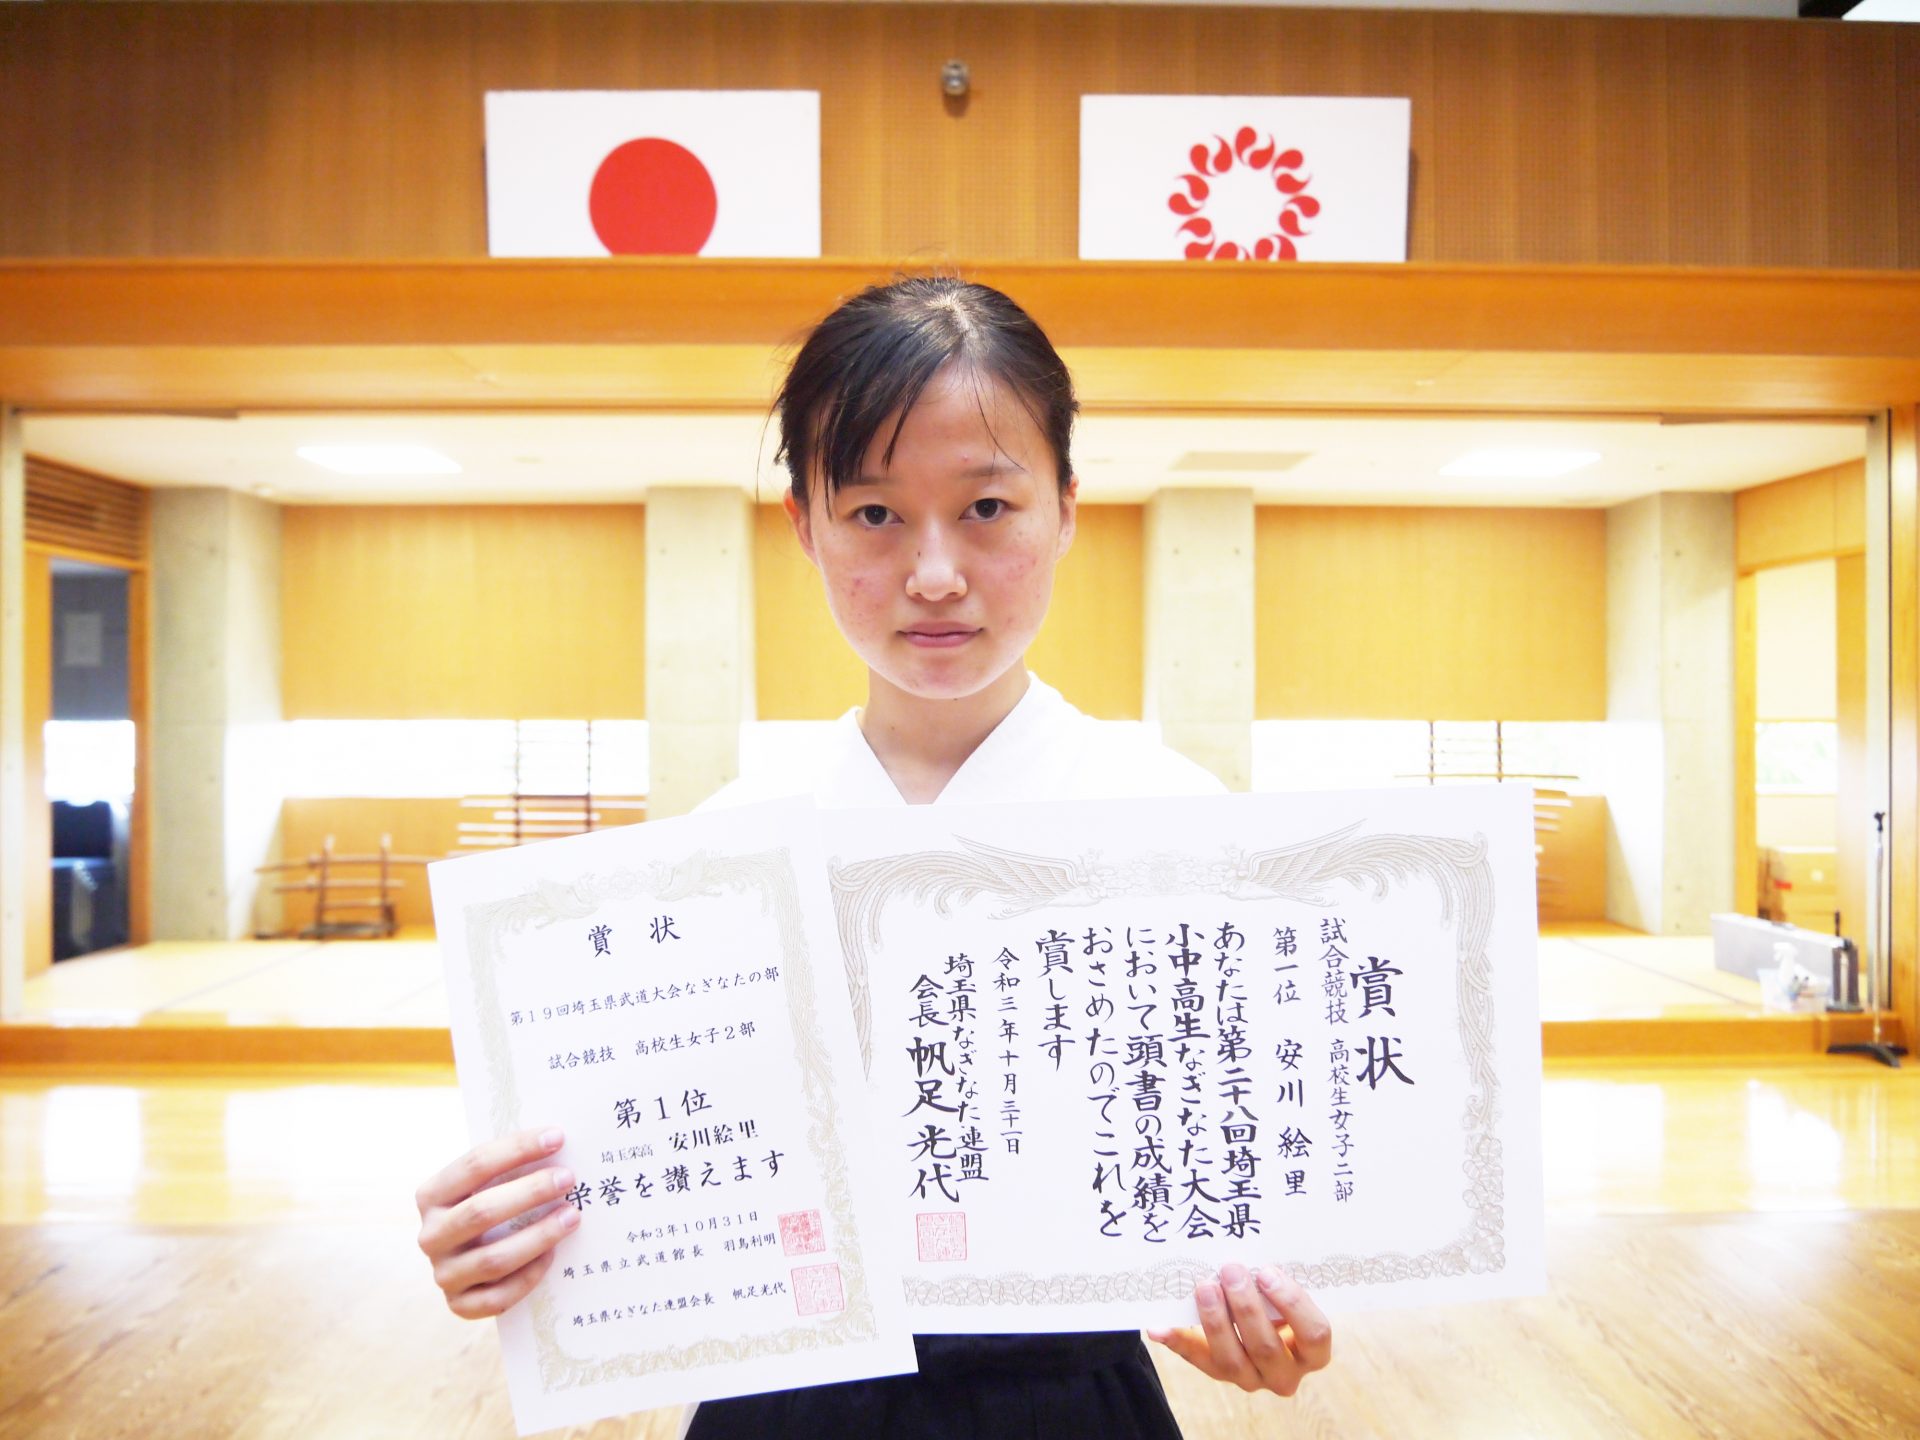 賞状
第19回埼玉県武道大会なぎなたの部
試合競技 高校生女子2部
第1位
埼玉栄高 安川絵里
栄誉を讃えます
令和3年10月31日
埼玉県立武道館長 羽鳥利明
埼玉県なぎなた連盟会長 帆足光代
賞状
試合競技 高校生女子二部
第一位 安川絵里
あなたは第二十八回埼玉県
小中高生なぎなた大会
において頭書の成績を
おさめたのでこれを
賞します
令和三年十月三十一日
埼玉県なぎなた連盟
会長 帆足光代